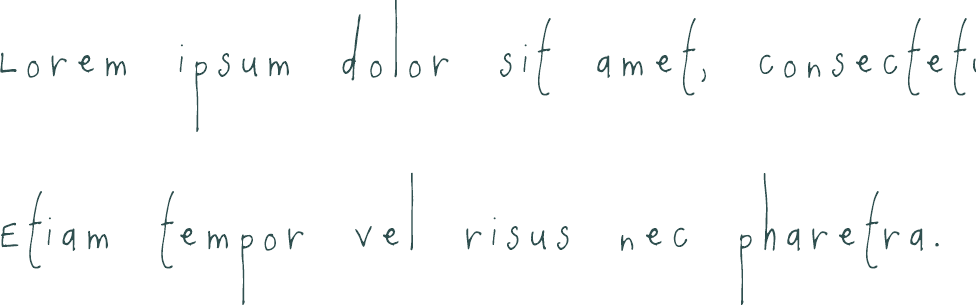 Lorem ipsum dolor sit amet, consectet
Etiam tempor vel risus nec pharetra.